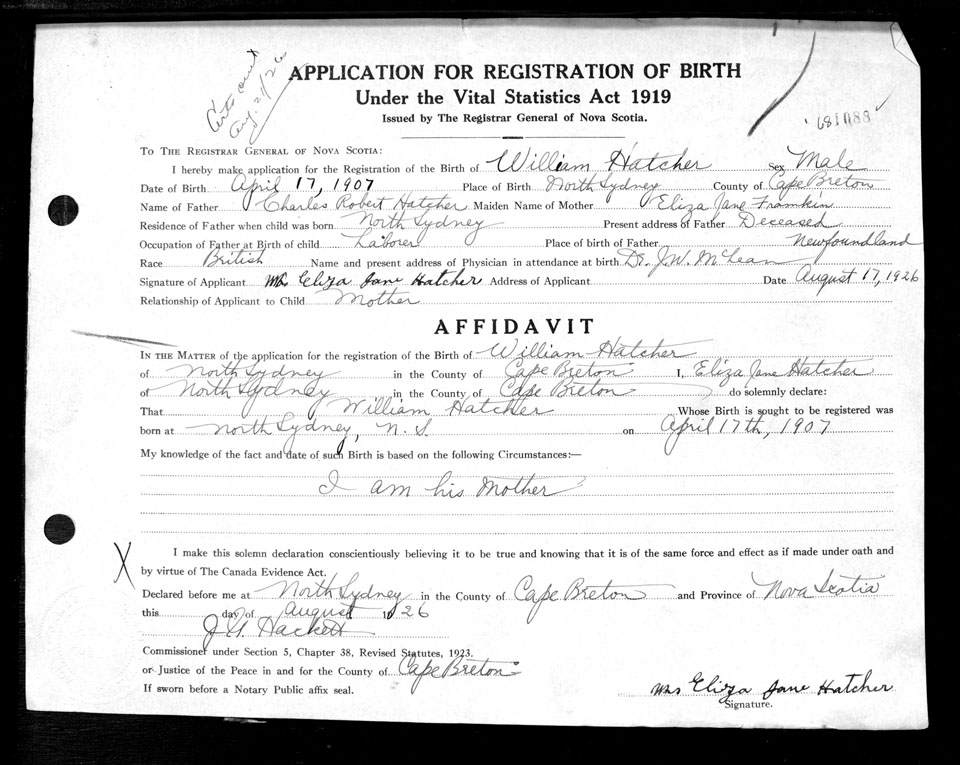 Aug. 21/26
APPLICATION FOR REGISTRATION OF BIRTH
Under the Vital Statistics Act 1919
Issued by The Registrar General of Nova Scotia.
TO THE REGISTRAR GENERAL OF NOVA SCOTIA:
I hereby make application for the Registration of the Birth of William Hatcher Sex Male
Date of Birth April 17, 1907 Place of Birth North Sydney County of Cape Breton
Name of Father Charles Robert Hatcher Maiden Name of Mother Eliza Jane
Residence of Father when child was born North Sydney Present address of Father Deceased
Occupation of Father at Birth of child Laborer Place of birth of Father Newfoundland
Race British Name and present address of Physician in attendance at birth Dr. J.W. McLean
Signature of Applicant Mrs Eliza Jane Hatcher Address of Applicant Date August 17, 1926
Relationship of Applicant to Child Mother
AFFIDAVIT
IN THE MATTER of the application for the registration of the Birth of William Hatcher
of North Sydney in the County of Cape Breton I, Eliza Jane Hatcher
of North Sydney, in the County of Cape Breton do solemnly declare:
That William Hatcher Whose Birth is sought to be registered was
born at North Sydney, N.S. on April 17th, 1907
My knowledge of the fact and date of such Birth is based on the following Circumstances:—
I am his Mother
X I make this solemn declaration conscientiously believing it to be true and knowing that it is of the same force and effect as if made under oath and
by virtue of The Canada Evidence Act.
Declared before me at North Sydney in the County of Cape Breton and Province of Nova Scotia
this day of August 1926
Hackett
Commissioner under Section 5, Chapter 38, Revised Statutes, 1923.
or Justice of the Peace in and for the County of Cape Breton
If sworn before a Notary Public affix seal.
Mrs Eliza Jane Hatcher
Signature.